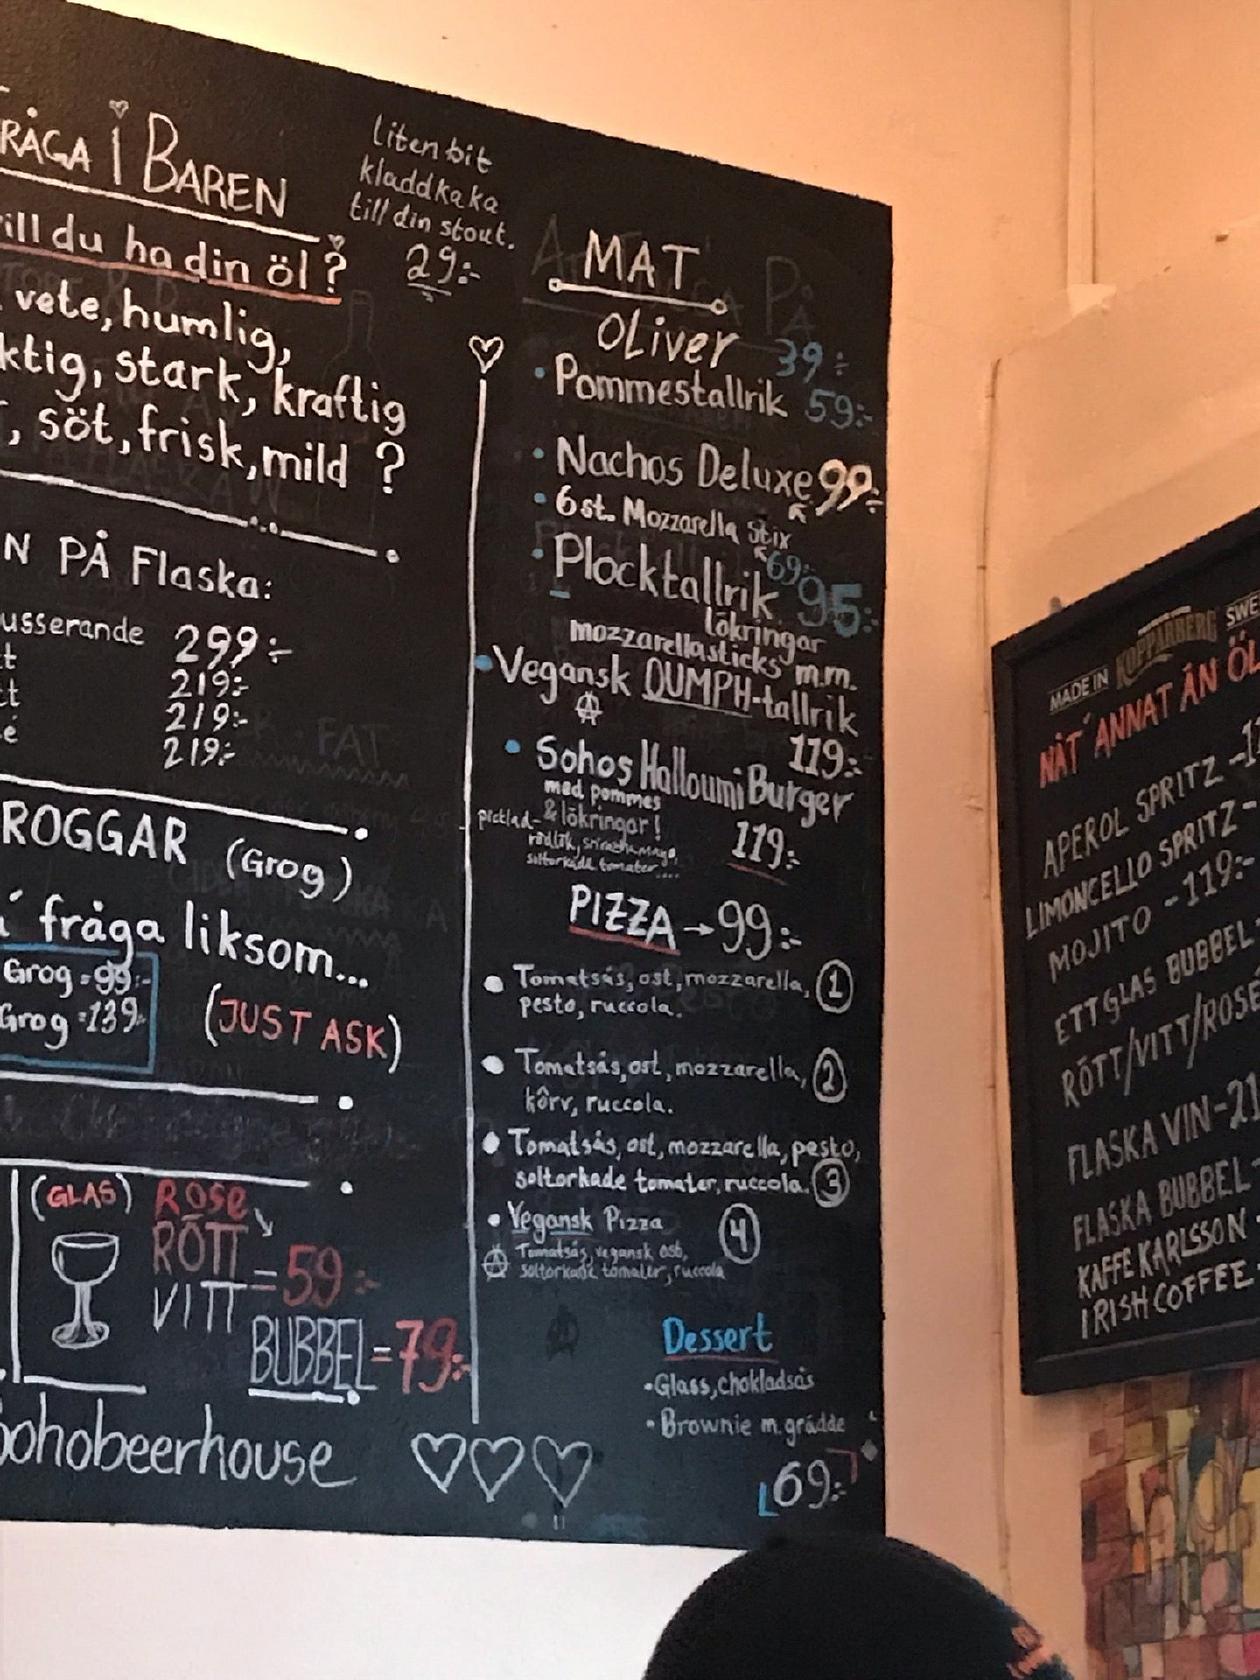 RÅGA I BAREN
ill du ha din öl?
vete, humlig,
ktig, stark, kraftig
, söt, frisk, mild ?
Liten bit
kladdkaka
till din stout.
29:-
N PÅ Flaska:
usserande 299:-
tt 219:-
tt 219:-
é 219:-
ROGGAR (Grog)
fråga liksom...
Grog = 99:-
Grog = 139:-
(JUST ASK)
(GLAS)
Rose
RÖTT
VITT
= 59:-
BUBBEL = 79:-
ohobeerhouse
MAT
OLiver 39:-
· Pommestallrik 59:-
· Nachos Deluxe 99:-
· 6 st. Mozzarella Stix
69:-
· Plocktallrik 95:-
lökringar
mozzarellasticks m.m.
· Vegansk OUMPH-tallrik
119:-
· Sohos Halloumi Burger
med pommes
& lökringar!
picklad-
rödlök, sriracha mayo,
soltorkade tomater....
119:-
PIZZA → 99:-
• Tomatsås, ost, mozzarella, 1
pesto, ruccola.
• Tomatsås, ost, mozzarella, 2
körv, ruccola.
• Tomatsås, ost, mozzarella, pesto,
soltorkade tomater, ruccola. 3
• Vegansk Pizza 4
Tomatsås, vegansk ost,
soltorkade tomater, ruccola
Dessert
· Glass, chokladsås
· Brownie m. grädde
69:-
MADE IN KOPPARBERG SWE
NÅT' ANNAT ÄN ÖL
APEROL SPRITZ -1
LIMONCELLO SPRITZ -
MOJITO - 119:-
ETT GLAS BUBBEL
RÖTT/VITT/ROSE
FLASKA VIN - 21
FLASKA BUBBEL -
KAFFE KARLSSON
IRISH COFFEE -